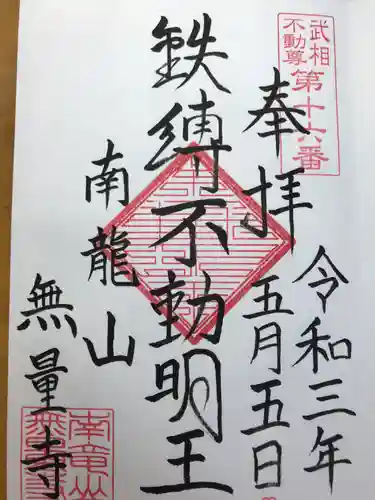 武相
不動尊
第十六番
奉拝
令和三年
五月五日
鉄縛不動明王
南龍山
無量寺